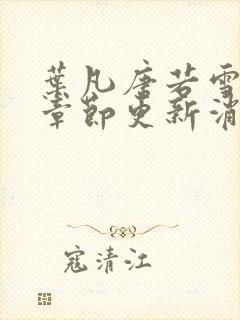 葉凡唐若雪
章節更新消
寇清江